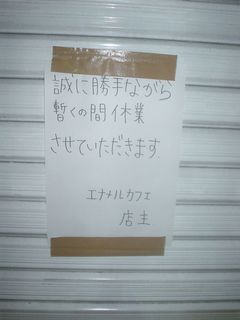 誠に勝手ながら
暫くの間休業
させていただきます
エナメルカフェ
店主